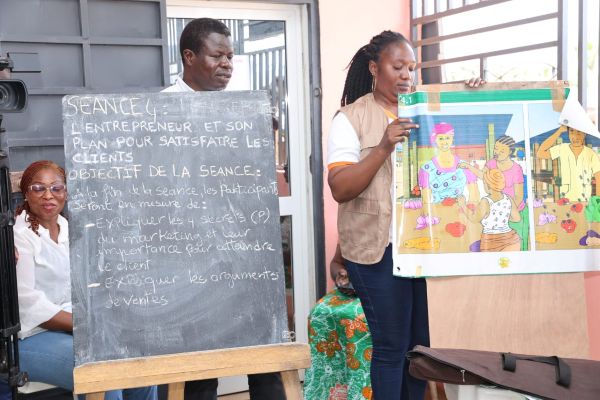 SEANCE 4 :
L'ENTREPRENEUR ET SON
PLAN POUR SATISFAIRE LES
CLIENTS
OBJECTIF DE LA SEANCE :
A la fin de la seance, les participants
seront en mesure de :
- Expliquer les 4 secrets (P)
du marketing et leur
importance pour atteindre
le client
- Expliquer les arguments
de ventes